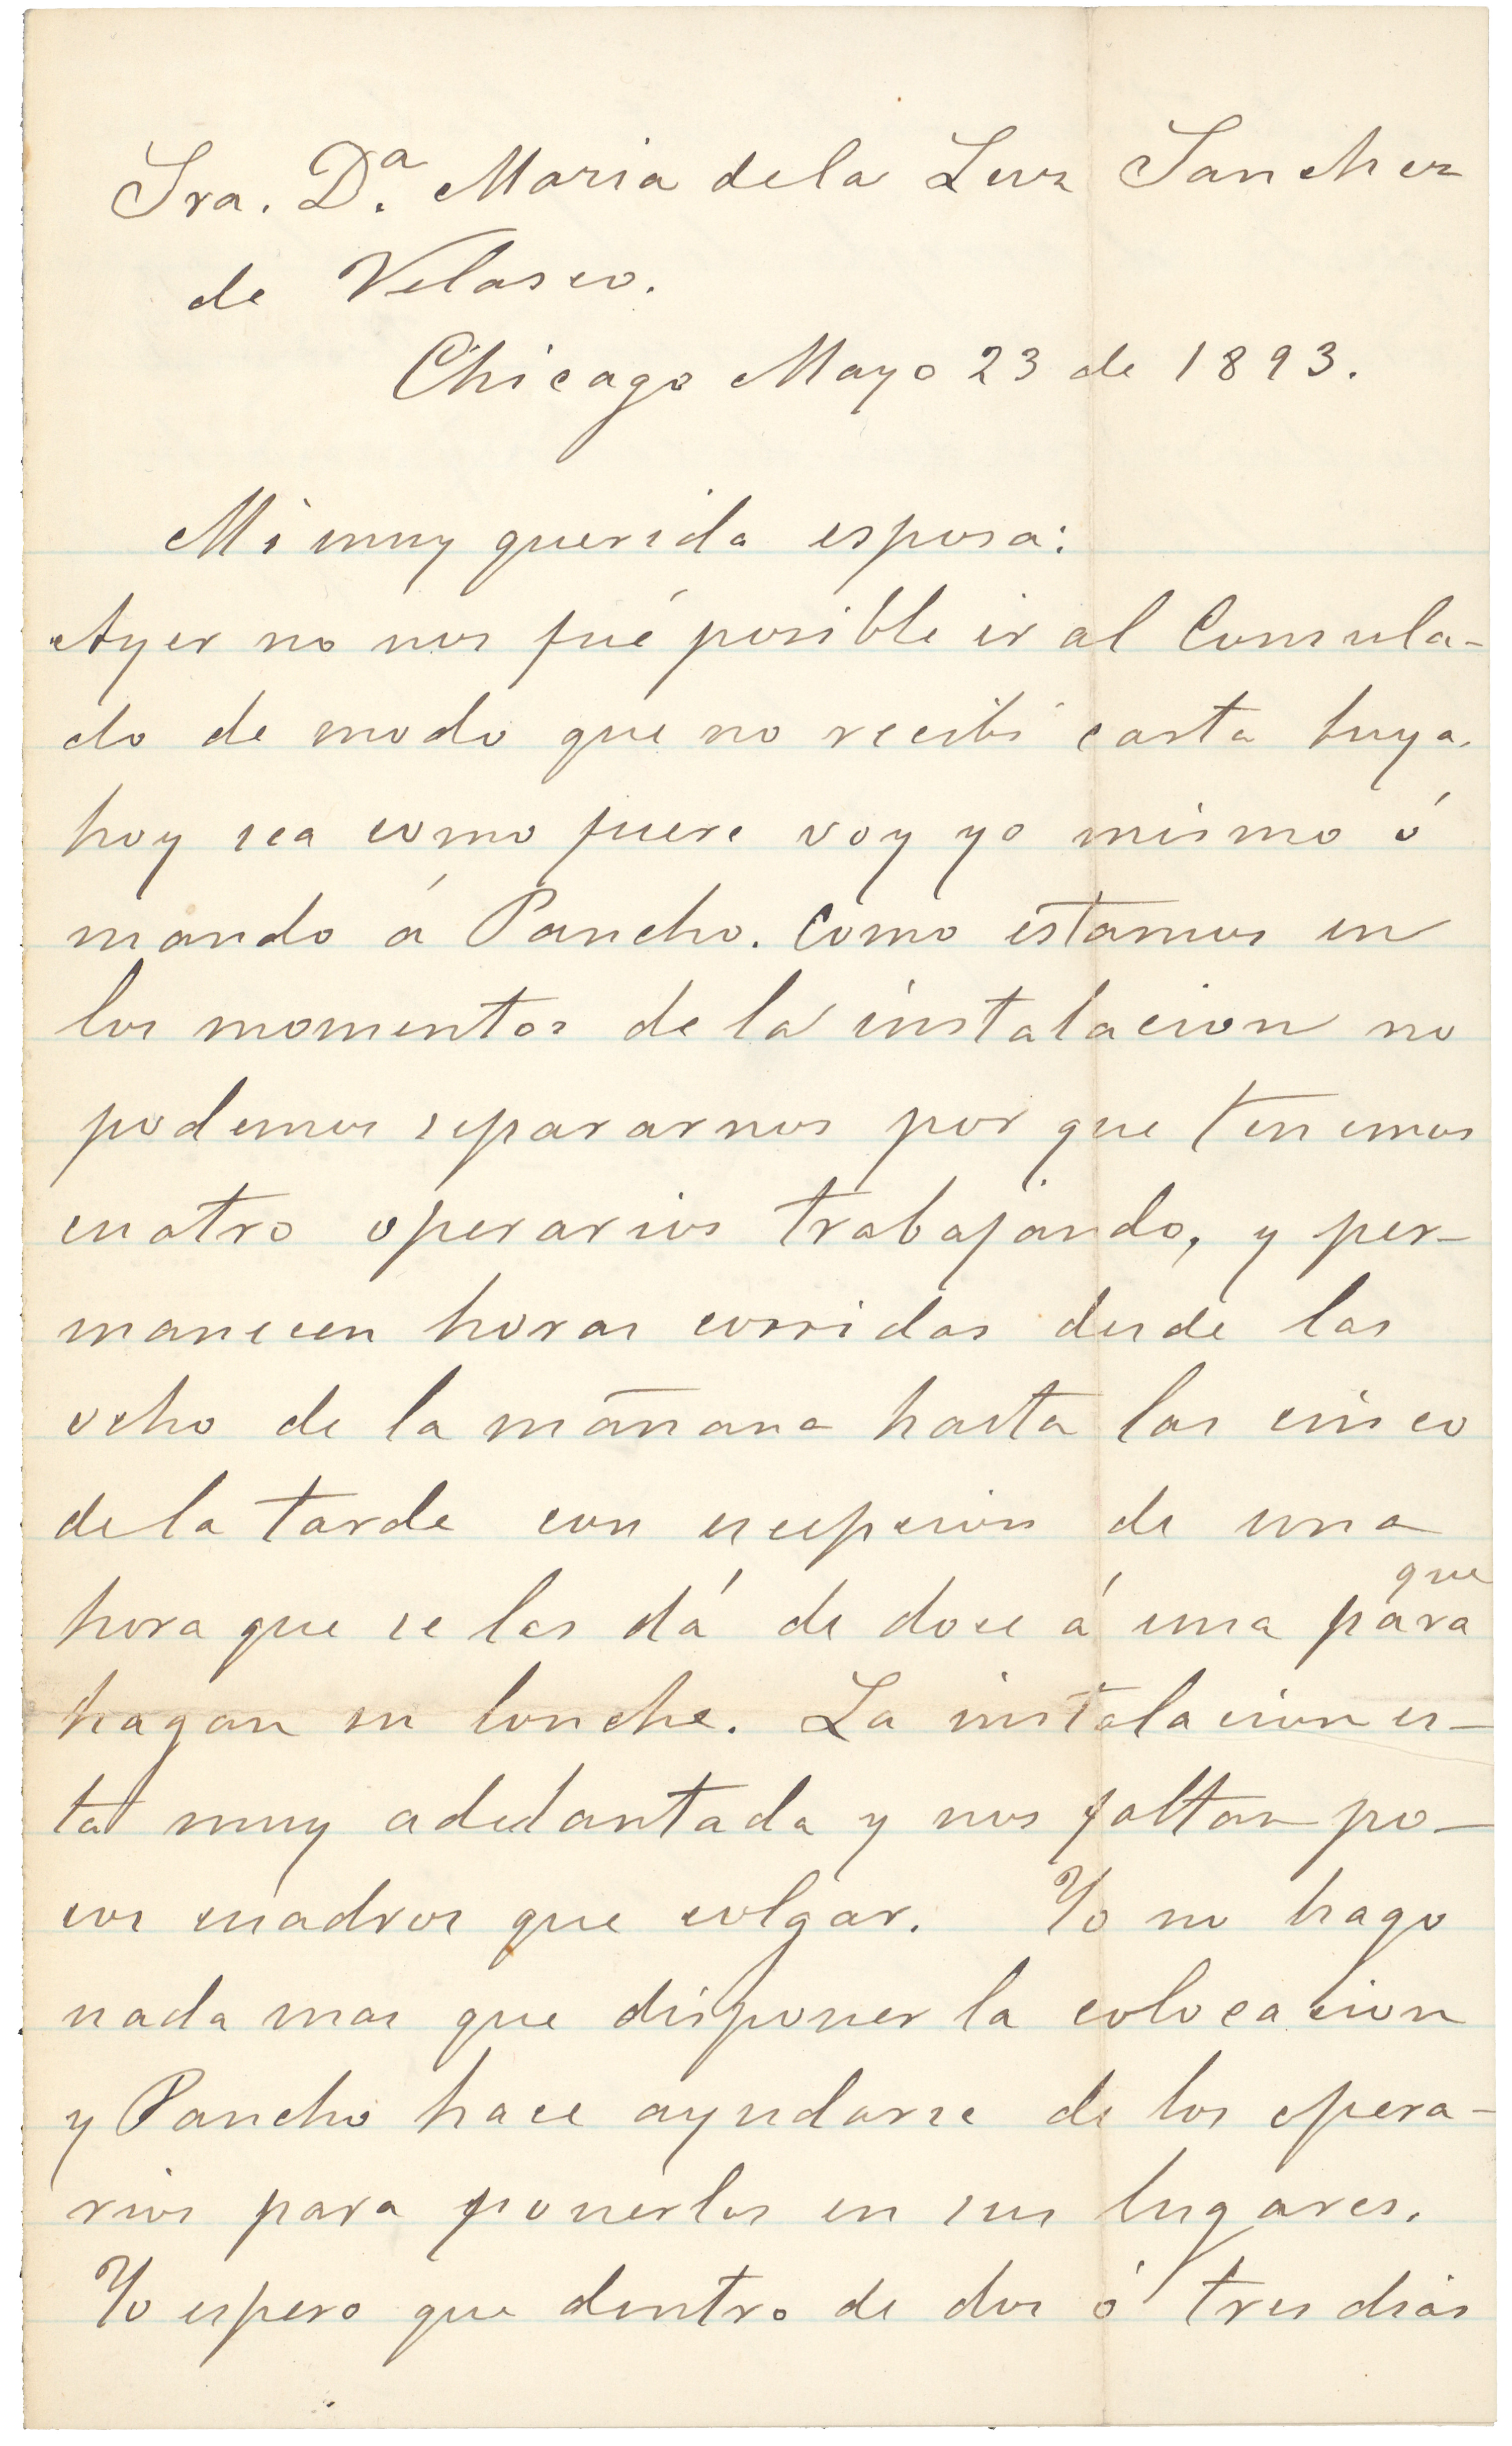 Sra. D.ª Maria de la Luz Sanchez
de Velasco.
Chicago Mayo 23 de 1893.
Mi muy querida esposa:
Ayer no nos fué posible ir al Consula-
do de modo que no recibí carta tuya.
hoy sea como fuere voy yo mismo ó
mando á Pancho. Como estamos en
los momentos de la instalacion no
podemos separarnos por que tenemos
cuatro operarios trabajando, y per-
manecen horas corridas desde las
ocho de la mañana hasta las cinco
de la tarde con escepcion de una
hora que se les dá de doce á una para que
hagan su lonche. La instalacion es-
tá muy adelantada y nos faltan po-
cos cuadros que colgar. Yo no hago
nada mas que disponer la colocacion
y Pancho hace ayudarse de los opera-
rios para ponerlos en sus lugares.
Yo espero que dentro de dos ó tres dias